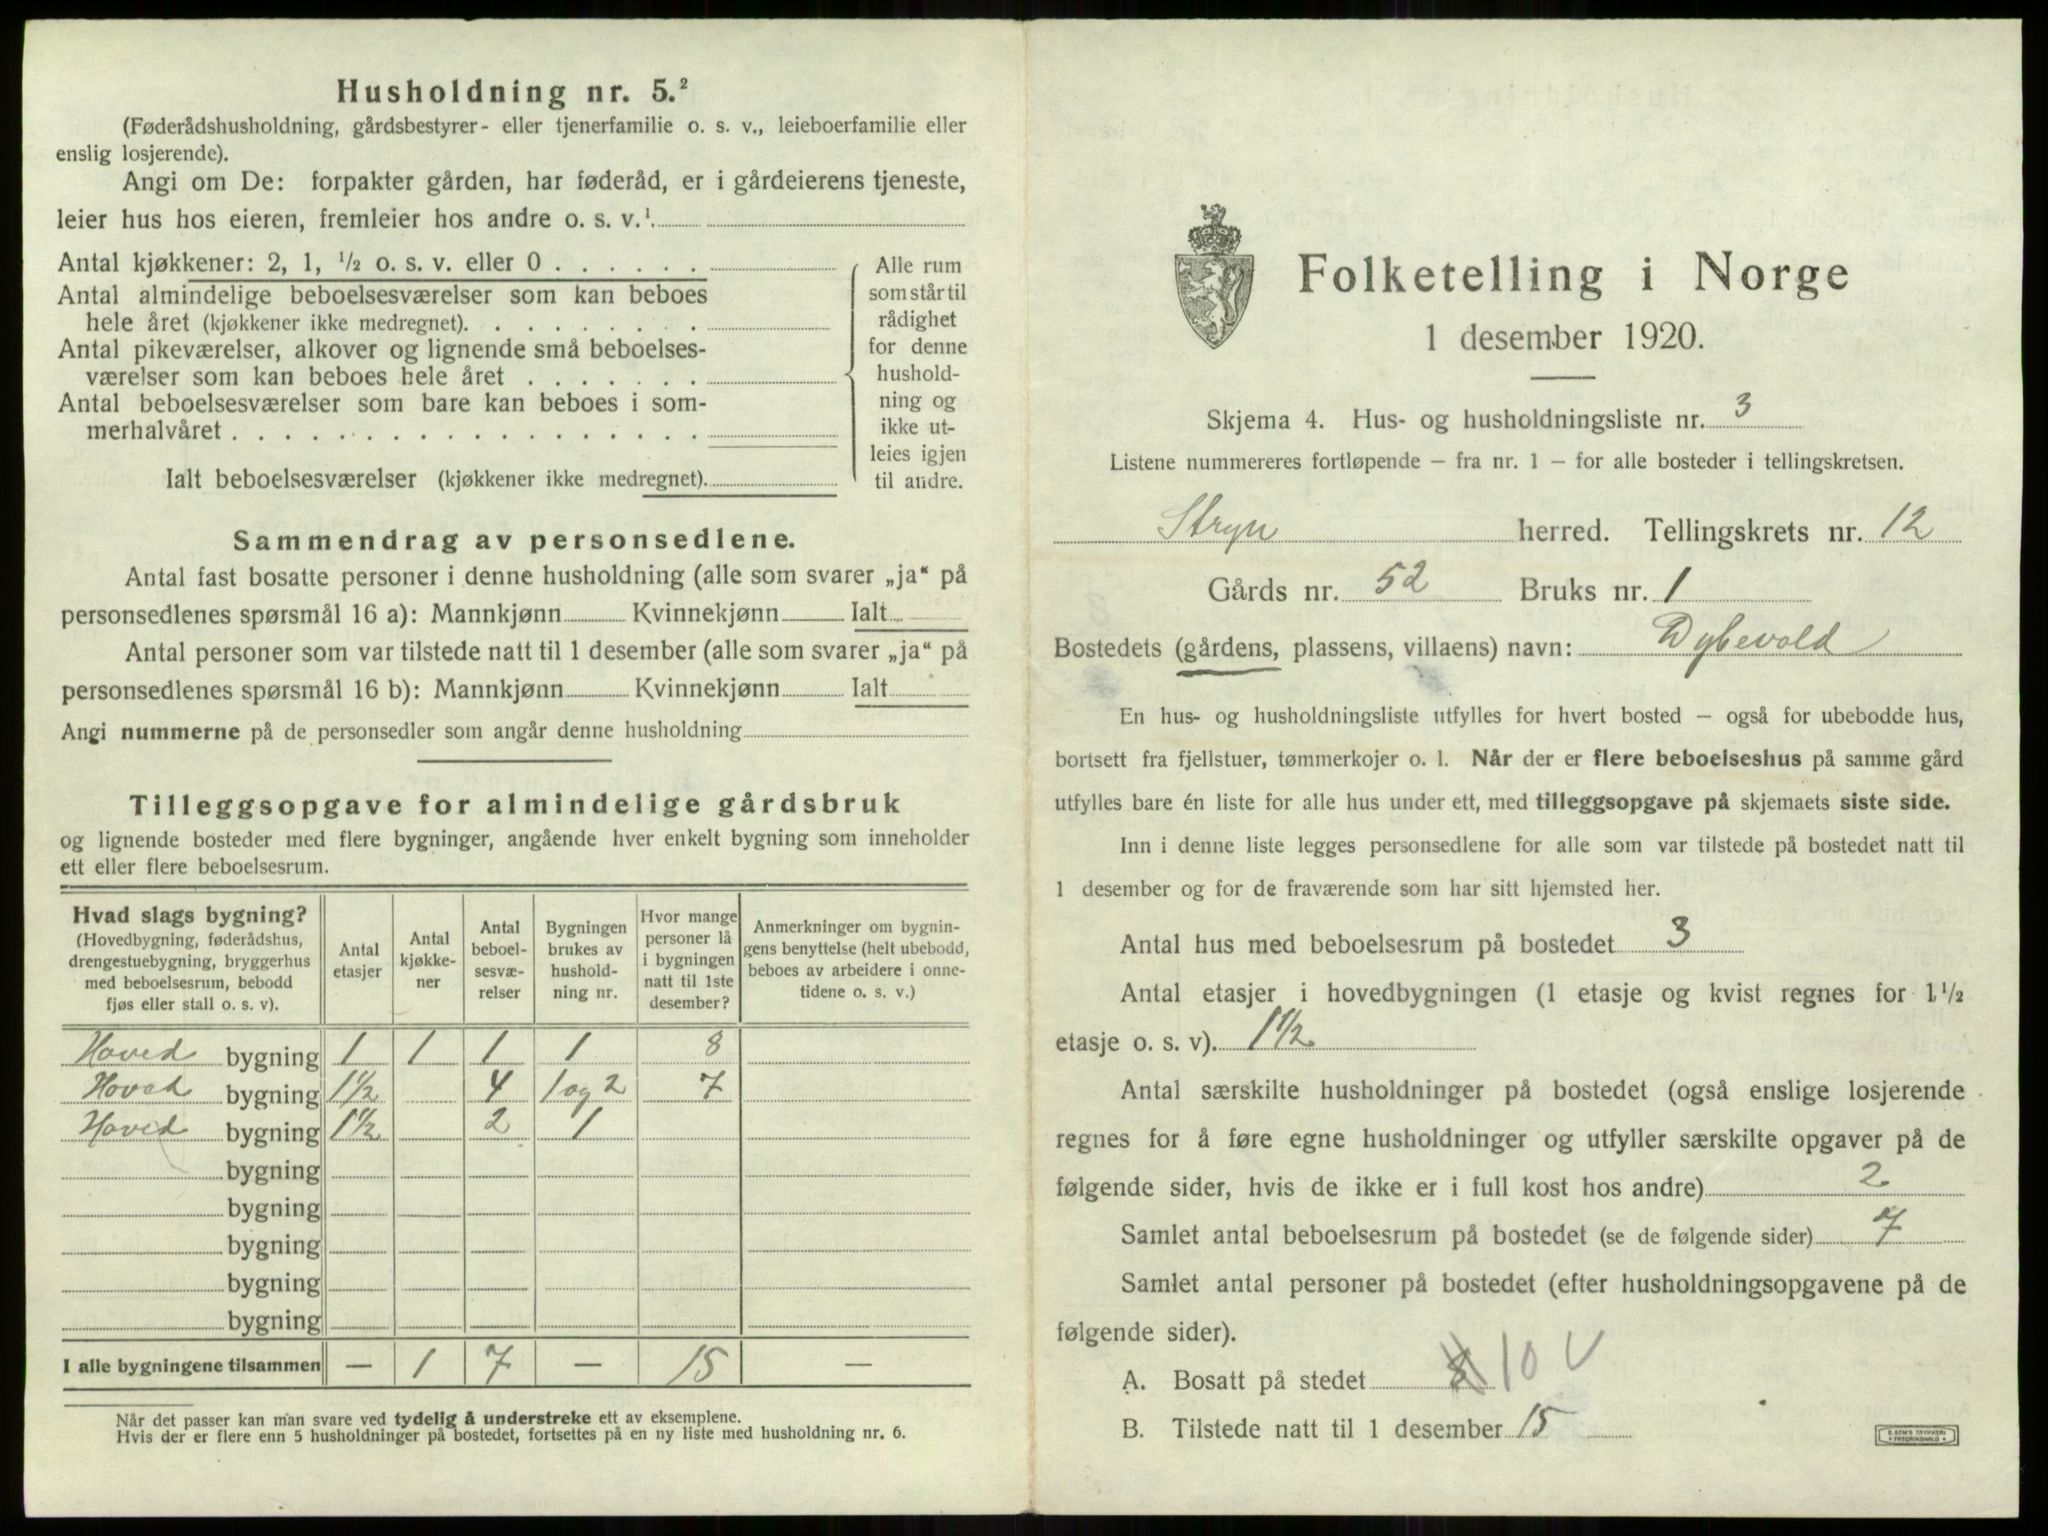 Husholdning nr. 5.²
(Føderådshusholdning, gårdsbestyrer- eller tjenerfamilie o. s. v., leieboerfamilie eller
enslig losjerende).
Angi om De: forpakter gården, har føderåd, er i gårdeierens tjeneste,
leier hus hos eieren, fremleier hos andre o. s. v.¹
Antal kjøkkener: 2, 1, ½ o. s. v. eller 0 . . . . . .
Antal almindelige beboelsesværelser som kan beboes
hele året (kjøkkener ikke medregnet). . . . . . . . .
Antal pikeværelser, alkover og lignende små beboelses-
værelser som kan beboes hele året . . . . . . .
Antal beboelsesværelser som bare kan beboes i som-
merhalvåret . . . . . . . . . . . . . . . . . .
Ialt beboelsesværelser (kjøkkener ikke medregnet).
Alle rum
som står til
rådighet
for denne
hushold-
ning og
ikke ut-
leies igjen
til andre.
Sammendrag av personsedlene.
Antal fast bosatte personer i denne husholdning (alle som svarer „ja“ på
personsedlenes spørsmål 16 a): Mannkjønn Kvinnekjønn Ialt
Antal personer som var tilstede natt til 1 desember (alle som svarer „ja“ på
personsedlenes spørsmål 16 b): Mannkjønn Kvinnekjønn Ialt
Angi nummerne på de personsedler som angår denne husholdning
Tilleggsopgave for almindelige gårdsbruk
og lignende bosteder med flere bygninger, angående hver enkelt bygning som inneholder
ett eller flere beboelsesrum.
Hvad slags bygning?
(Hovedbygning, føderådshus,
drengestuebygning, bryggerhus
med beboelsesrum, bebodd
fjøs eller stall o. s. v).
Antal
etasjer
Antal
kjøkke-
ner
Antal
beboel-
sesvæ-
relser
Bygningen
brukes av
hushold-
ning nr.
Hvor mange
personer lå
i bygningen
natt til 1ste
desember?
Anmerkninger om bygnin-
gens benyttelse (helt ubebodd,
beboes av arbeidere i onne-
tidene o. s. v.)
Hoved bygning 1 1 1 1 8
Hoved bygning 1½ 4 1 og 2 7
Hoved bygning 1½ 2 1
bygning
bygning
bygning
bygning
bygning
I alle bygningene tilsammen — 1 7 — 15 —
Når det passer kan man svare ved tydelig å understreke ett av eksemplene.
Hvis der er flere enn 5 husholdninger på bostedet, fortsettes på en ny liste med husholdning nr. 6.
Folketelling i Norge
1 desember 1920.
Skjema 4. Hus- og husholdningsliste nr. 3
Listene nummereres fortløpende – fra nr. 1 – for alle bosteder i tellingskretsen.
Stryn herred. Tellingskrets nr. 12
Gårds nr. 52 Bruks nr. 1
Bostedets (gårdens, plassens, villaens) navn: Dybevold
En hus- og husholdningsliste utfylles for hvert bosted – også for ubebodde hus,
bortsett fra fjellstuer, tømmerkojer o. l. Når der er flere beboelseshus på samme gård
utfylles bare én liste for alle hus under ett, med tilleggsopgave på skjemaets siste side.
Inn i denne liste legges personsedlene for alle som var tilstede på bostedet natt til
1 desember og for de fraværende som har sitt hjemsted her.
Antal hus med beboelsesrum på bostedet 3
Antal etasjer i hovedbygningen (1 etasje og kvist regnes for 1½
etasje o. s. v). 1½
Antal særskilte husholdninger på bostedet (også enslige losjerende
regnes for å føre egne husholdninger og utfyller særskilte opgaver på de
følgende sider, hvis de ikke er i full kost hos andre) 2
Samlet antal beboelsesrum på bostedet (se de følgende sider) 7
Samlet antal personer på bostedet (efter husholdningsopgavene på de
følgende sider).
A. Bosatt på stedet 10 V
B. Tilstede natt til 1 desember 15
E. SEM'S TRYKKERI
FREDRIKSHALD